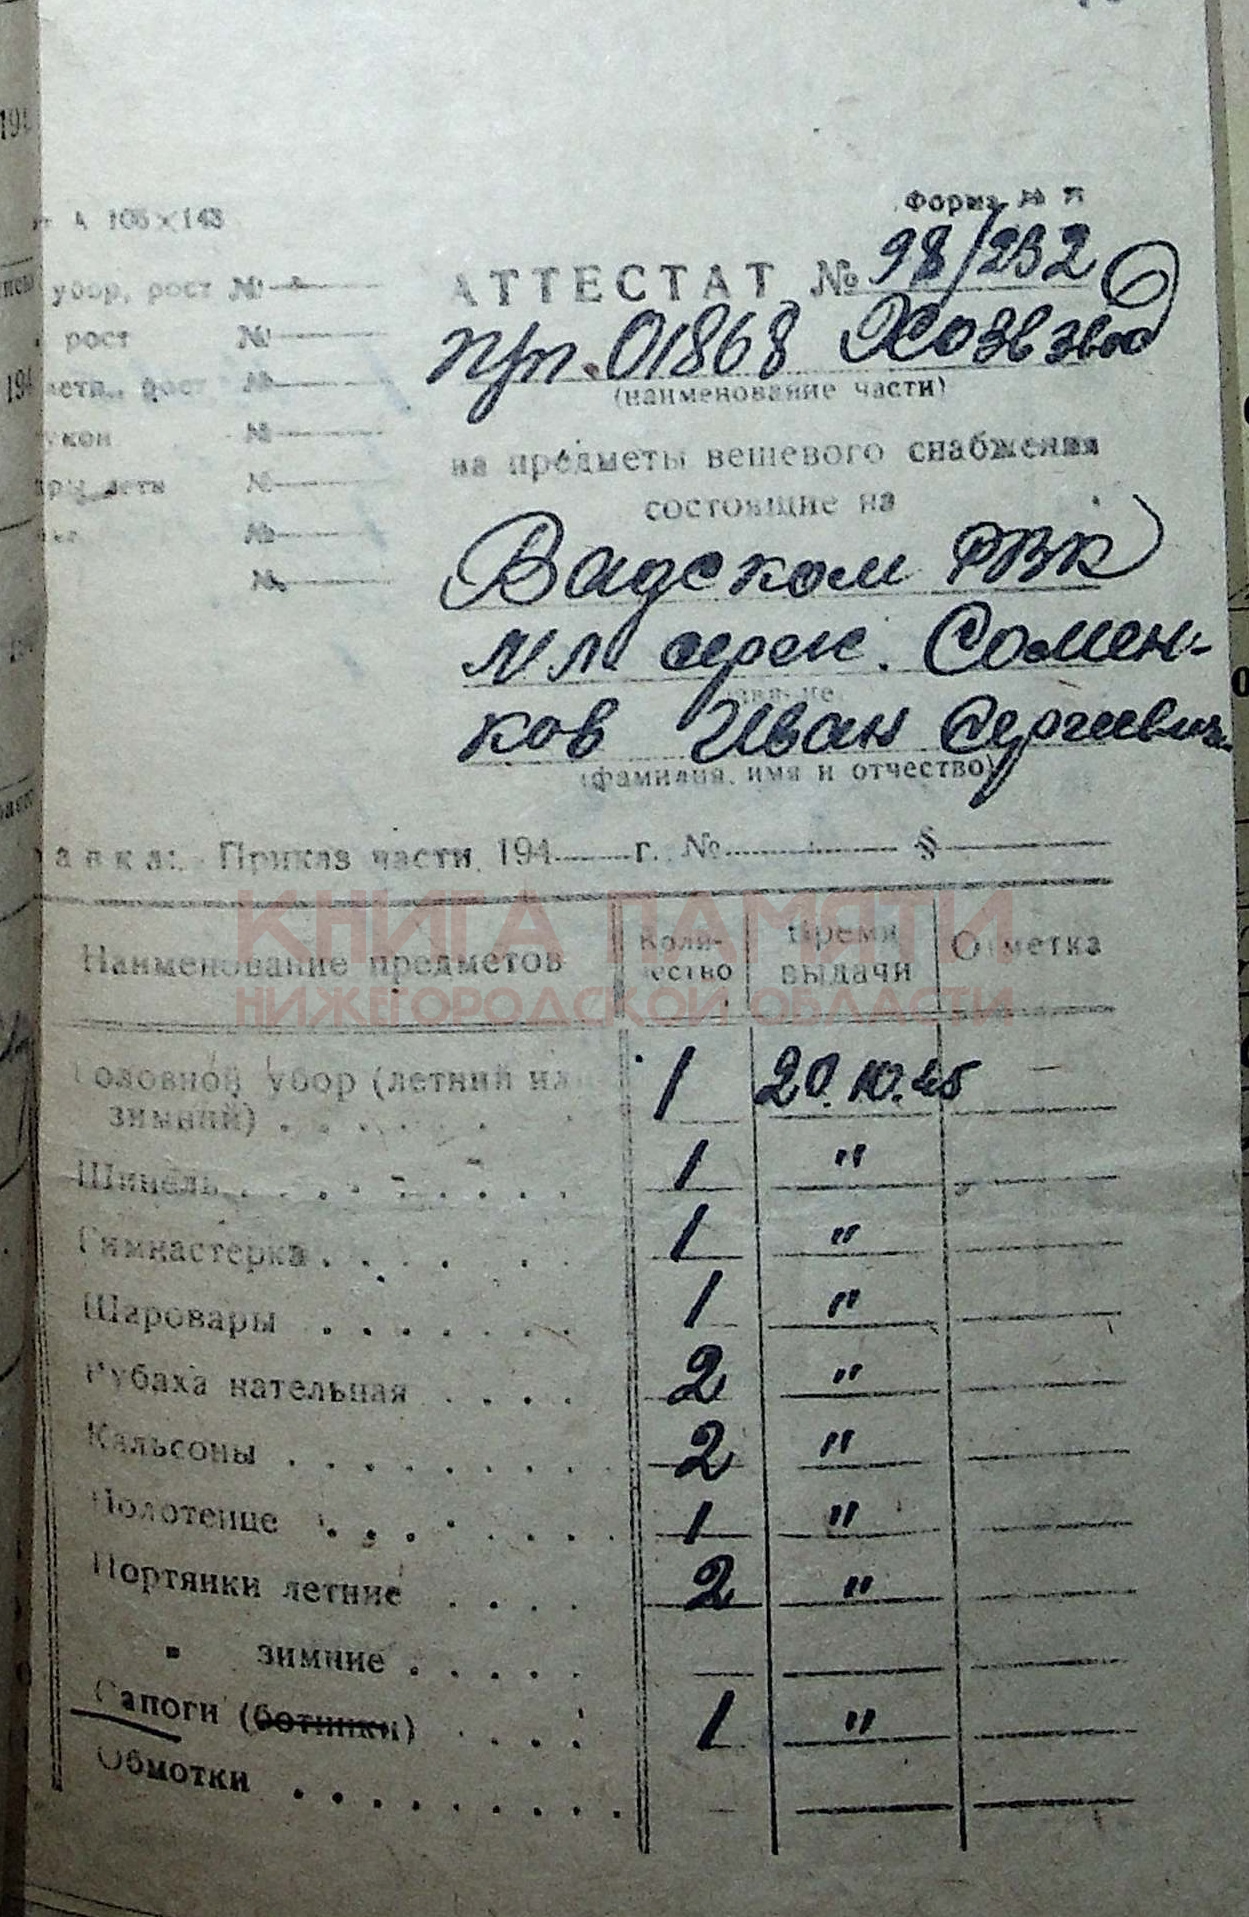 А 105×143
Форма №
АТТЕСТАТ № 98/232
прп. 01868 Хозвзвод
(наименование части)
убор, рост №
рост №
рост №
№
лети №
№
№
на предметы вещевого снабжения
состоящие на
Вадском РВК
Мл серж. Сомен-
ков Иван Сергиевич.
(фамилия, имя и отчество)
авка: Приказ части 194 г. № §
КНИГА ПАМЯТИ
НИЖЕГОРОДСКОЙ ОБЛАСТИ
Наименование предметов Коли- Время Отметка
чество выдачи
Головной убор (летний или 1 20.10.45 —
зимний)
Шинель 1 "
Гимнастерка 1 "
Шаровары 1 "
Рубаха нательная 2 "
Кальсоны 2 "
Полотенце 1 "
Портянки летние 2 "
" зимние —
Сапоги (ботинки) 1 "
Обмотки —